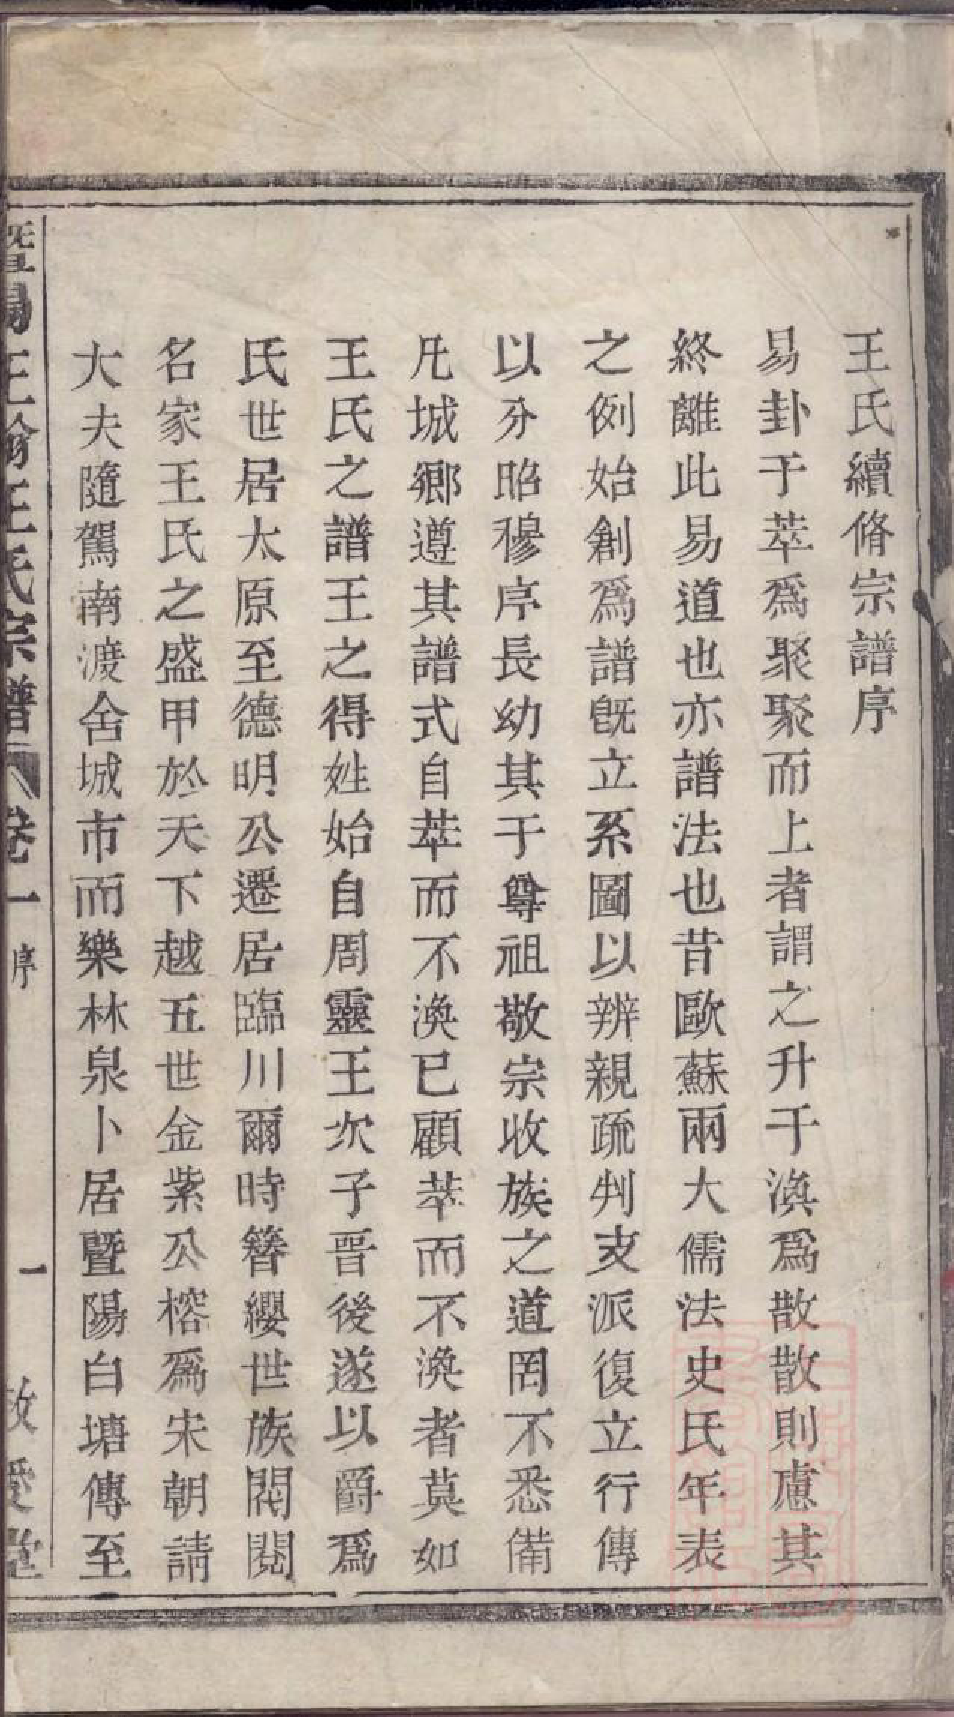 王氏續脩宗譜序
易卦于萃爲聚聚而上者謂之升于渙爲散散則慮其
終離此易道也亦譜法也昔歐蘇兩大儒法史氏年表
之例始創爲譜旣立系圖以辨親疏判支派復立行傳
以分昭穆序長幼其于尊祖敬宗收族之道罔不悉備
凡城鄉遵其譜式自萃而不渙已顧萃而不渙者莫如
王氏之譜王之得姓始自周靈王次子晋後遂以爵爲
氏世居太原至德明公遷居臨川爾時簪纓世族閥閱
名家王氏之盛甲於天下越五世金紫公榕爲宋朝請
大夫隨駕南渡舍城市而樂林泉卜居暨陽白塘傳至
暨陽王瑜王氏宗譜 卷一 序 一 敦愛堂